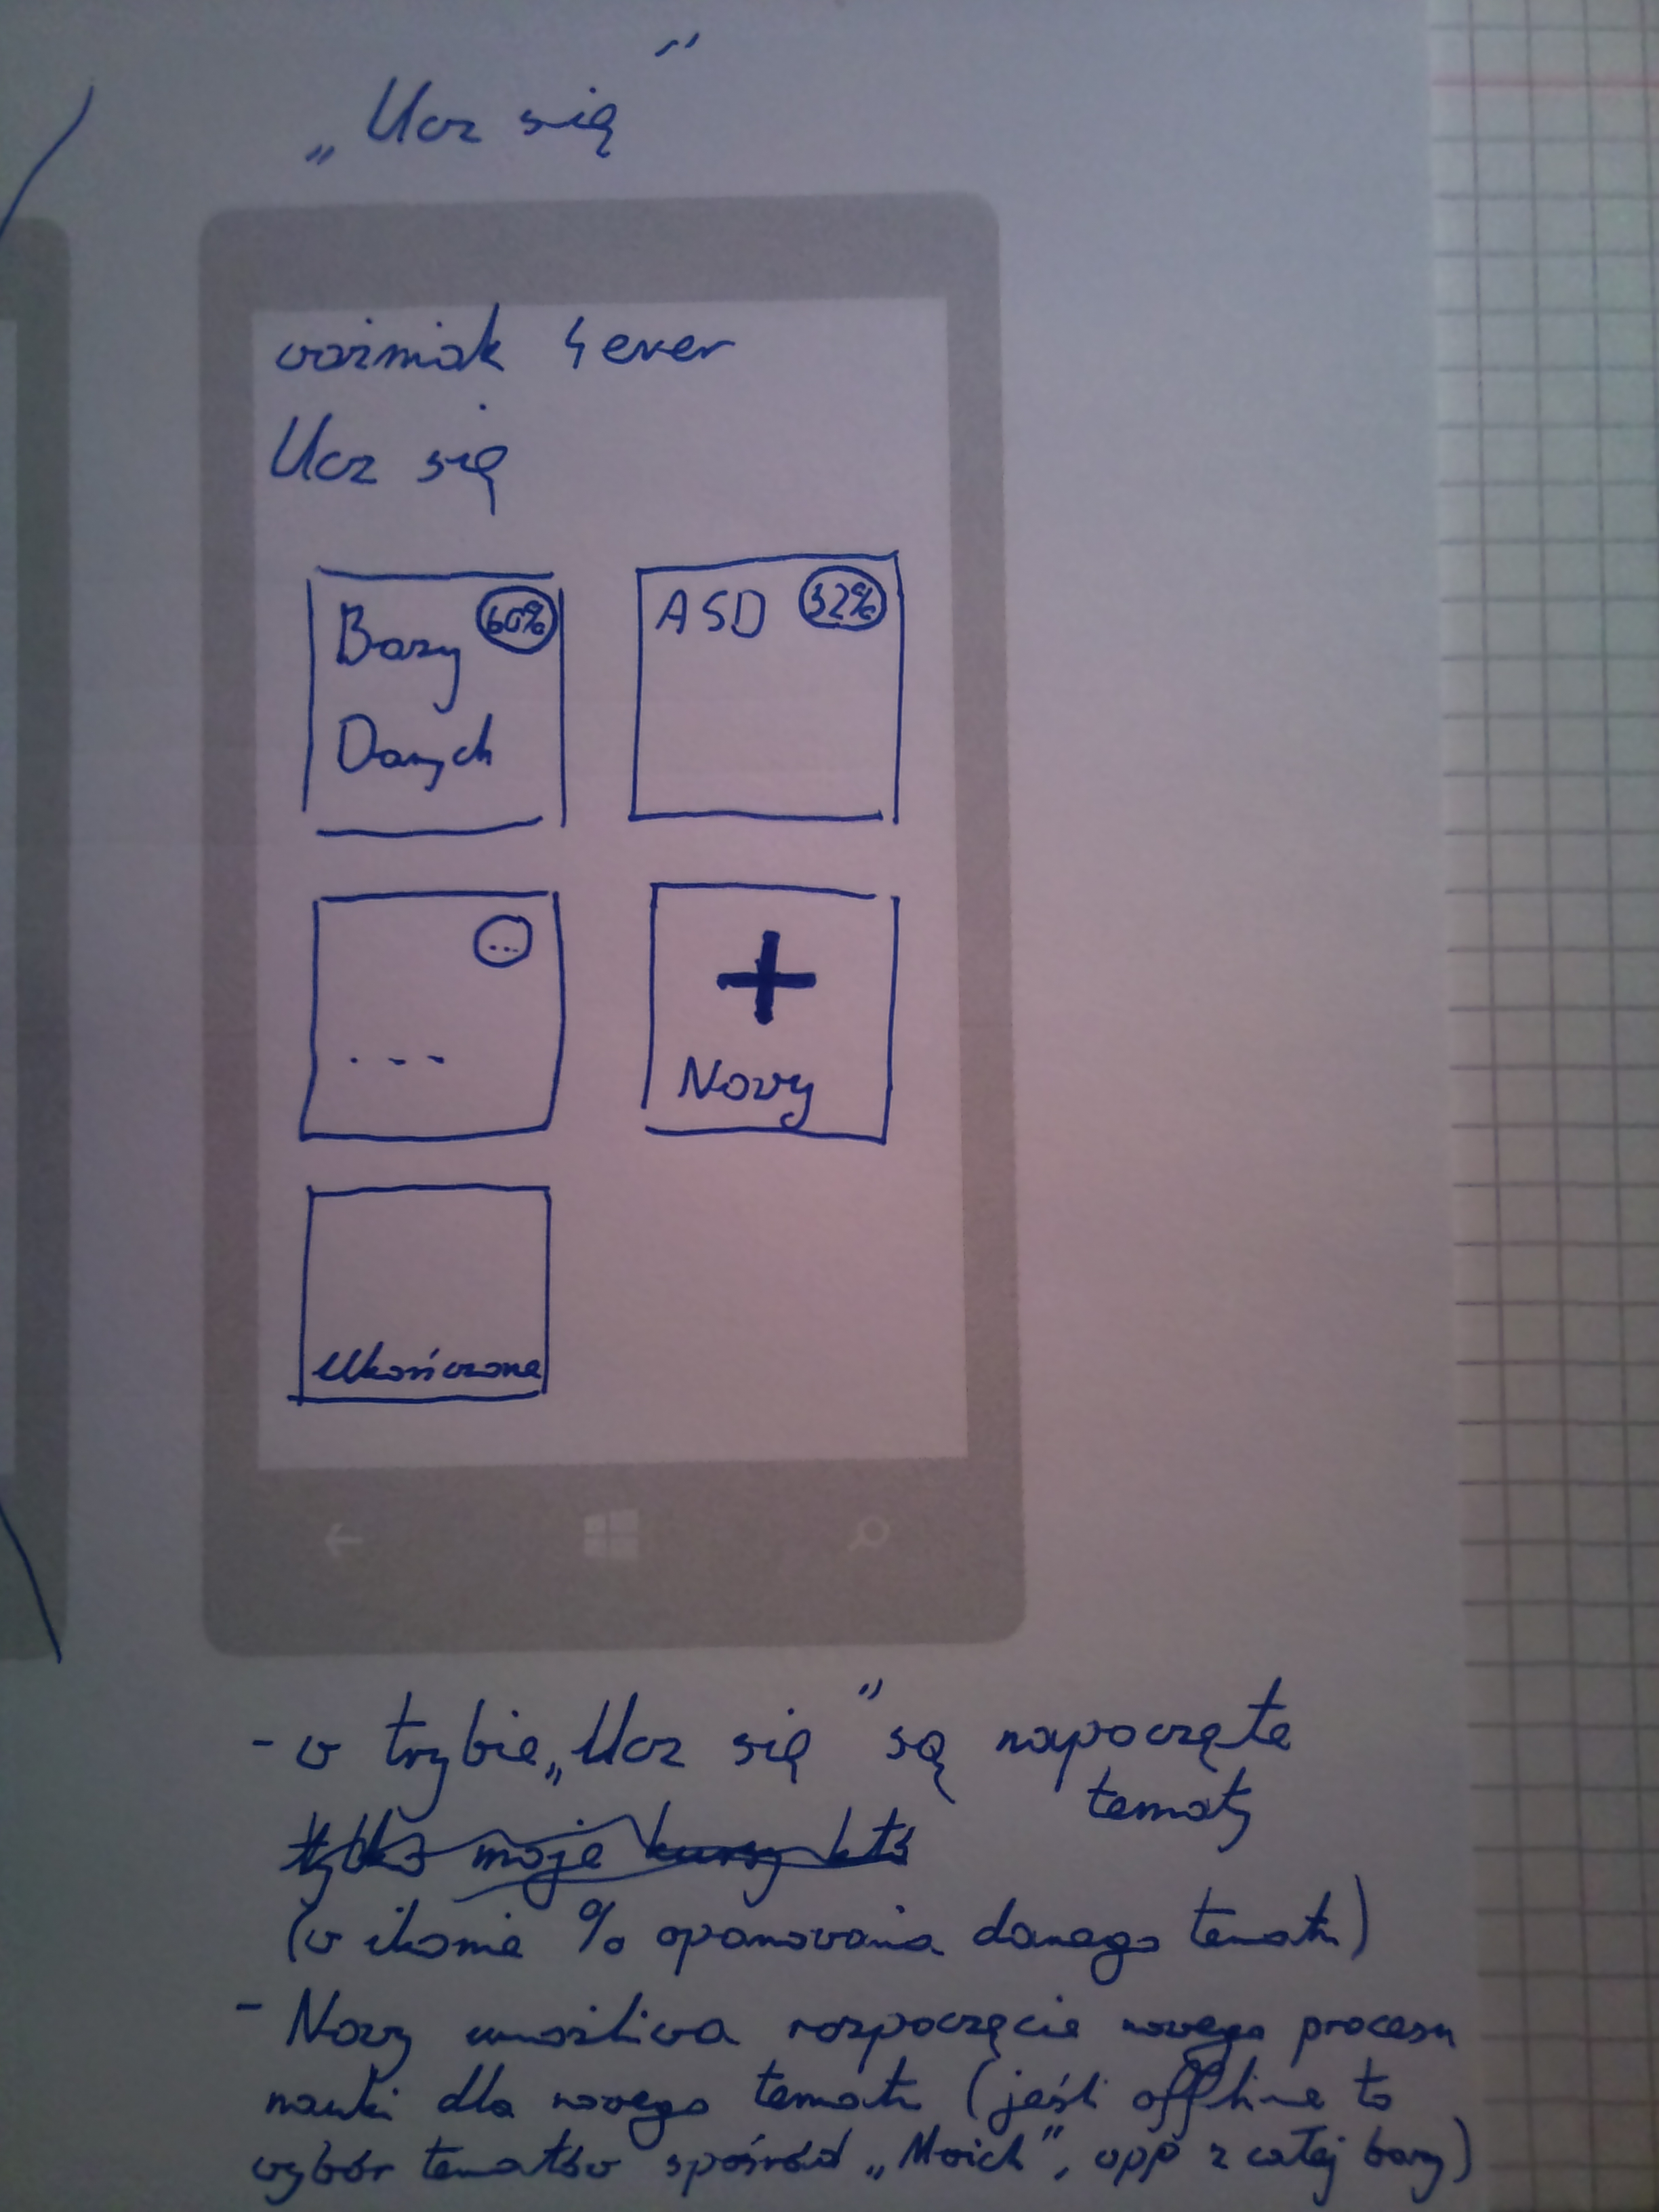 „Ucz się”
woźniak 4ever
Ucz się
Bazy 60%
Danych
ASD 32%
...
...
+
Nowy
Ukończone
- w trybie „Ucz się” są napoczęte
tematy
tylko moje kursy
(w ikonie % opanowania danego tematu)
- Nowy umożliwa rozpoczęcie nowego procesu
nauki dla nowego tematu (jeśli offline to
wybór tematów spośród „Moich”, opp z całej bazy)